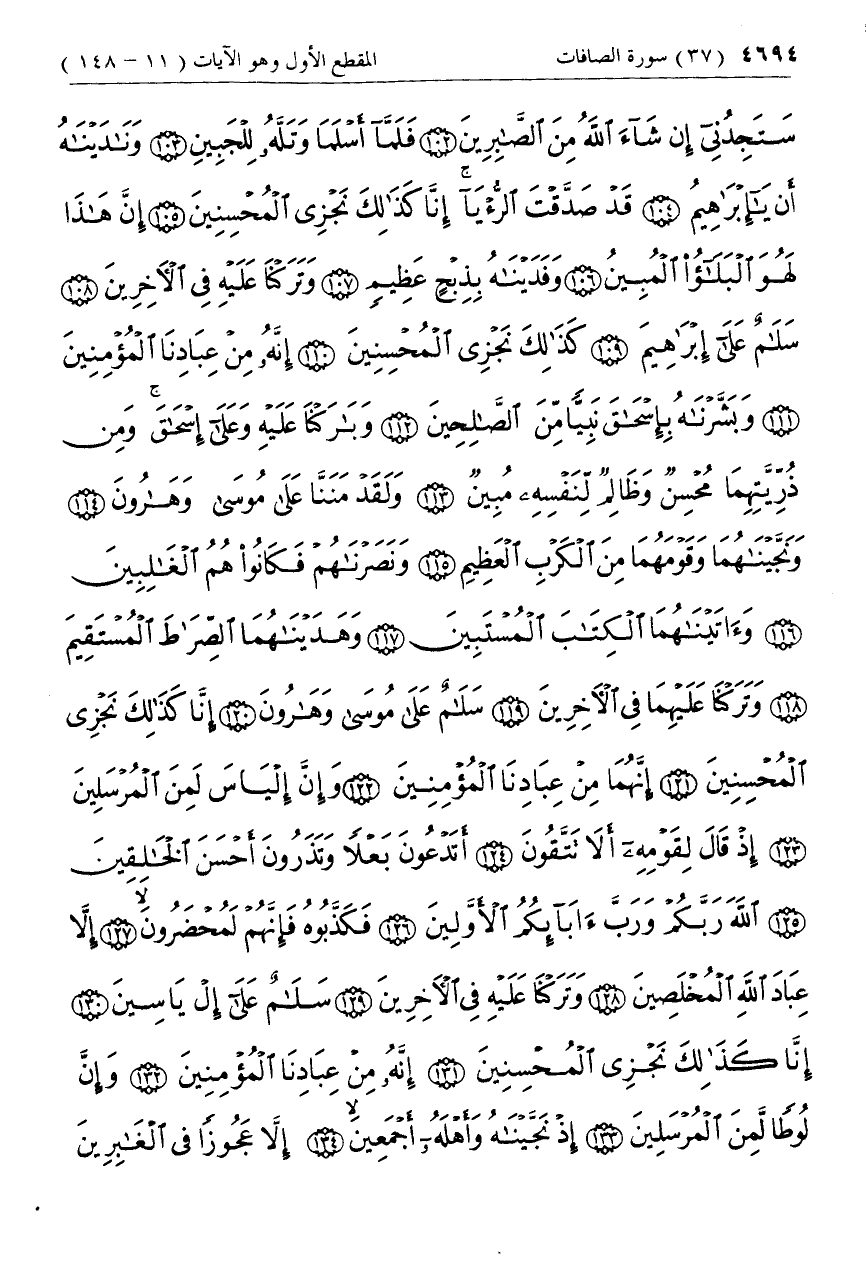 ٤٦٩٤ (٣٧) سورة الصافات المقطع الأول وهو الآيات (١١ - ١٤٨)
سَتَجِدُنِىٓ إِن شَآءَ ٱللَّهُ مِنَ ٱلصَّٰبِرِينَ ١٠٢ فَلَمَّآ أَسْلَمَا وَتَلَّهُۥ لِلْجَبِينِ ١٠٣ وَنَٰدَيْنَٰهُ
أَن يَٰٓإِبْرَٰهِيمُ ١٠٤ قَدْ صَدَّقْتَ ٱلرُّءْيَآۚ إِنَّا كَذَٰلِكَ نَجْزِى ٱلْمُحْسِنِينَ ١٠٥ إِنَّ هَٰذَا
لَهُوَ ٱلْبَلَٰٓؤُا۟ ٱلْمُبِينُ ١٠٦ وَفَدَيْنَٰهُ بِذِبْحٍ عَظِيمٍ ١٠٧ وَتَرَكْنَا عَلَيْهِ فِى ٱلْءَاخِرِينَ ١٠٨
سَلَٰمٌ عَلَىٰٓ إِبْرَٰهِيمَ ١٠٩ كَذَٰلِكَ نَجْزِى ٱلْمُحْسِنِينَ ١١٠ إِنَّهُۥ مِنْ عِبَادِنَا ٱلْمُؤْمِنِينَ
١١١ وَبَشَّرْنَٰهُ بِإِسْحَٰقَ نَبِيًّا مِّنَ ٱلصَّٰلِحِينَ ١١٢ وَبَٰرَكْنَا عَلَيْهِ وَعَلَىٰٓ إِسْحَٰقَۚ وَمِن
ذُرِّيَّتِهِمَا مُحْسِنٌ وَظَالِمٌ لِّنَفْسِهِۦ مُبِينٌ ١١٣ وَلَقَدْ مَنَنَّا عَلَىٰ مُوسَىٰ وَهَٰرُونَ ١١٤
وَنَجَّيْنَٰهُمَا وَقَوْمَهُمَا مِنَ ٱلْكَرْبِ ٱلْعَظِيمِ ١١٥ وَنَصَرْنَٰهُمْ فَكَانُوا۟ هُمُ ٱلْغَٰلِبِينَ
١١٦ وَءَاتَيْنَٰهُمَا ٱلْكِتَٰبَ ٱلْمُسْتَبِينَ ١١٧ وَهَدَيْنَٰهُمَا ٱلصِّرَٰطَ ٱلْمُسْتَقِيمَ
١١٨ وَتَرَكْنَا عَلَيْهِمَا فِى ٱلْءَاخِرِينَ ١١٩ سَلَٰمٌ عَلَىٰ مُوسَىٰ وَهَٰرُونَ ١٢٠ إِنَّا كَذَٰلِكَ نَجْزِى
ٱلْمُحْسِنِينَ ١٢١ إِنَّهُمَا مِنْ عِبَادِنَا ٱلْمُؤْمِنِينَ ١٢٢ وَإِنَّ إِلْيَاسَ لَمِنَ ٱلْمُرْسَلِينَ
١٢٣ إِذْ قَالَ لِقَوْمِهِۦٓ أَلَا تَتَّقُونَ ١٢٤ أَتَدْعُونَ بَعْلًا وَتَذَرُونَ أَحْسَنَ ٱلْخَٰلِقِينَ
١٢٥ ٱللَّهَ رَبَّكُمْ وَرَبَّ ءَابَآئِكُمُ ٱلْأَوَّلِينَ ١٢٦ فَكَذَّبُوهُ فَإِنَّهُمْ لَمُحْضَرُونَۙ ١٢٧ إِلَّا
عِبَادَ ٱللَّهِ ٱلْمُخْلَصِينَ ١٢٨ وَتَرَكْنَا عَلَيْهِ فِى ٱلْءَاخِرِينَ ١٢٩ سَلَٰمٌ عَلَىٰٓ إِلْ يَاسِينَ ١٣٠
إِنَّا كَذَٰلِكَ نَجْزِى ٱلْمُحْسِنِينَ ١٣١ إِنَّهُۥ مِنْ عِبَادِنَا ٱلْمُؤْمِنِينَ ١٣٢ وَإِنَّ
لُوطًا لَّمِنَ ٱلْمُرْسَلِينَ ١٣٣ إِذْ نَجَّيْنَٰهُ وَأَهْلَهُۥٓ أَجْمَعِينَۙ ١٣٤ إِلَّا عَجُوزًا فِى ٱلْغَٰبِرِينَ